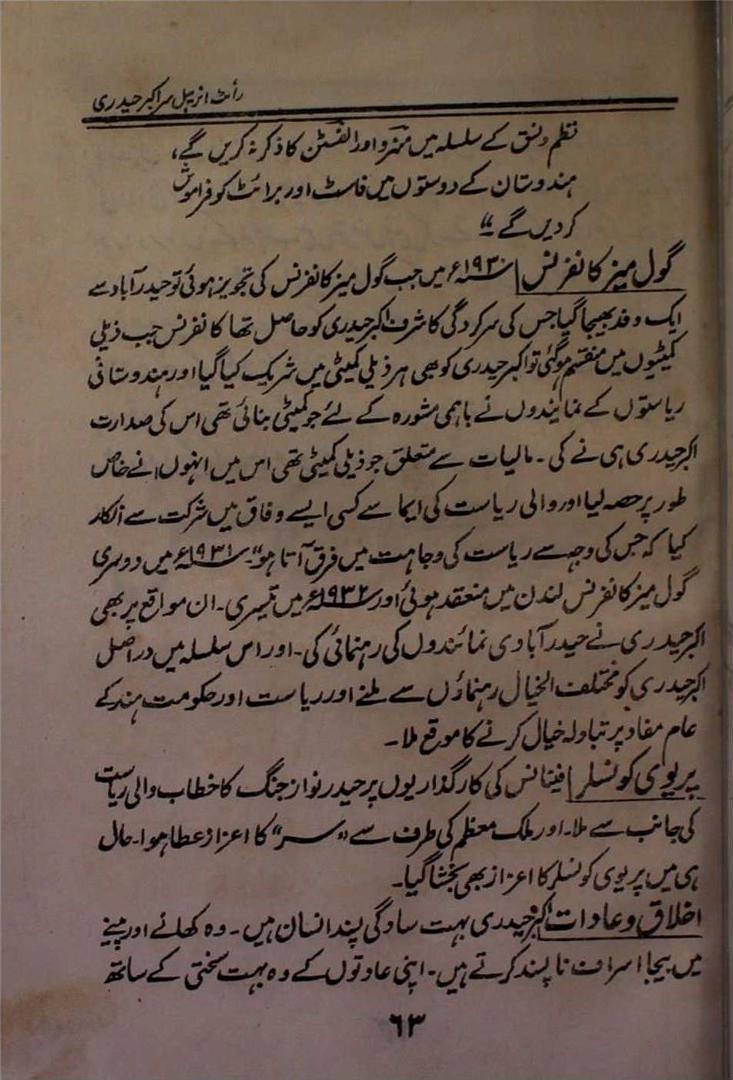 رأٹ انریبل سر اکبر حیدری
نظم و نسق کے سلسلہ میں منرو اور الفنسٹن کا ذکر نہ کریں گے،
ہندوستان کے دوستوں میں فاسٹ اور برائٹ کو فراموش
کر دیں گے“
گول میز کانفرنس | ۱۹۳۰ء میں جب گول میز کانفرنس کی تجویز ہوئی تو حیدرآباد سے
ایک وفد بھیجا گیا جس کی سرکردگی کا شرف اکبر حیدری کو حاصل تھا کانفرنس جب ذیلی
کمیٹیوں میں منقسم ہو گئی تو اکبر حیدری کو بھی ہر ذیلی کمیٹی میں شریک کیا گیا اور ہندوستانی
ریاستوں کے نمایندوں نے باہمی مشورہ کے لئے جو کمیٹی بنائی تھی اس کی صدارت
اکبر حیدری ہی نے کی۔ مالیات سے متعلق جو ذیلی کمیٹی تھی اس میں انہوں نے خاص
طور پر حصہ لیا اور والی ریاست کی ایما سے کسی ایسے وفاق میں شرکت سے انکار
کیا کہ جس کی وجہ سے ریاست کی وجاہت میں فرق آتا ہو“۔ ۱۹۳۱ء میں دوسری
گول میز کانفرنس لندن میں منعقد ہوئی اور ۱۹۳۲ء میں تیسری۔ ان مواقع پر بھی
اکبر حیدری نے حیدرآبادی نمائندوں کی رہنمائی کی۔ اور اس سلسلہ میں دراصل
اکبر حیدری کو مختلف الخیال رہنماؤں سے ملنے اور ریاست اور حکومت ہند کے
عام مفاد پر تبادلہ خیال کرنے کا موقع ملا۔
پریوی کونسلر | فینانس کی کارگذاریوں پر حیدر نواز جنگ کا خطاب والی ریاست
کی جانب سے ملا۔ اور ملک معظم کی طرف سے ”سر“ کا اعزاز عطا ہوا۔ حال
ہی میں پریوی کونسلر کا اعزاز بھی بخشا گیا۔
اخلاق و عادات | اکبر حیدری بہت سادگی پسند انسان ہیں۔ وہ کھانے اور پینے
میں بیجا اسراف نا پسند کرتے ہیں۔ اپنی عادتوں کے وہ بہت سختی کے ساتھ
۶۳